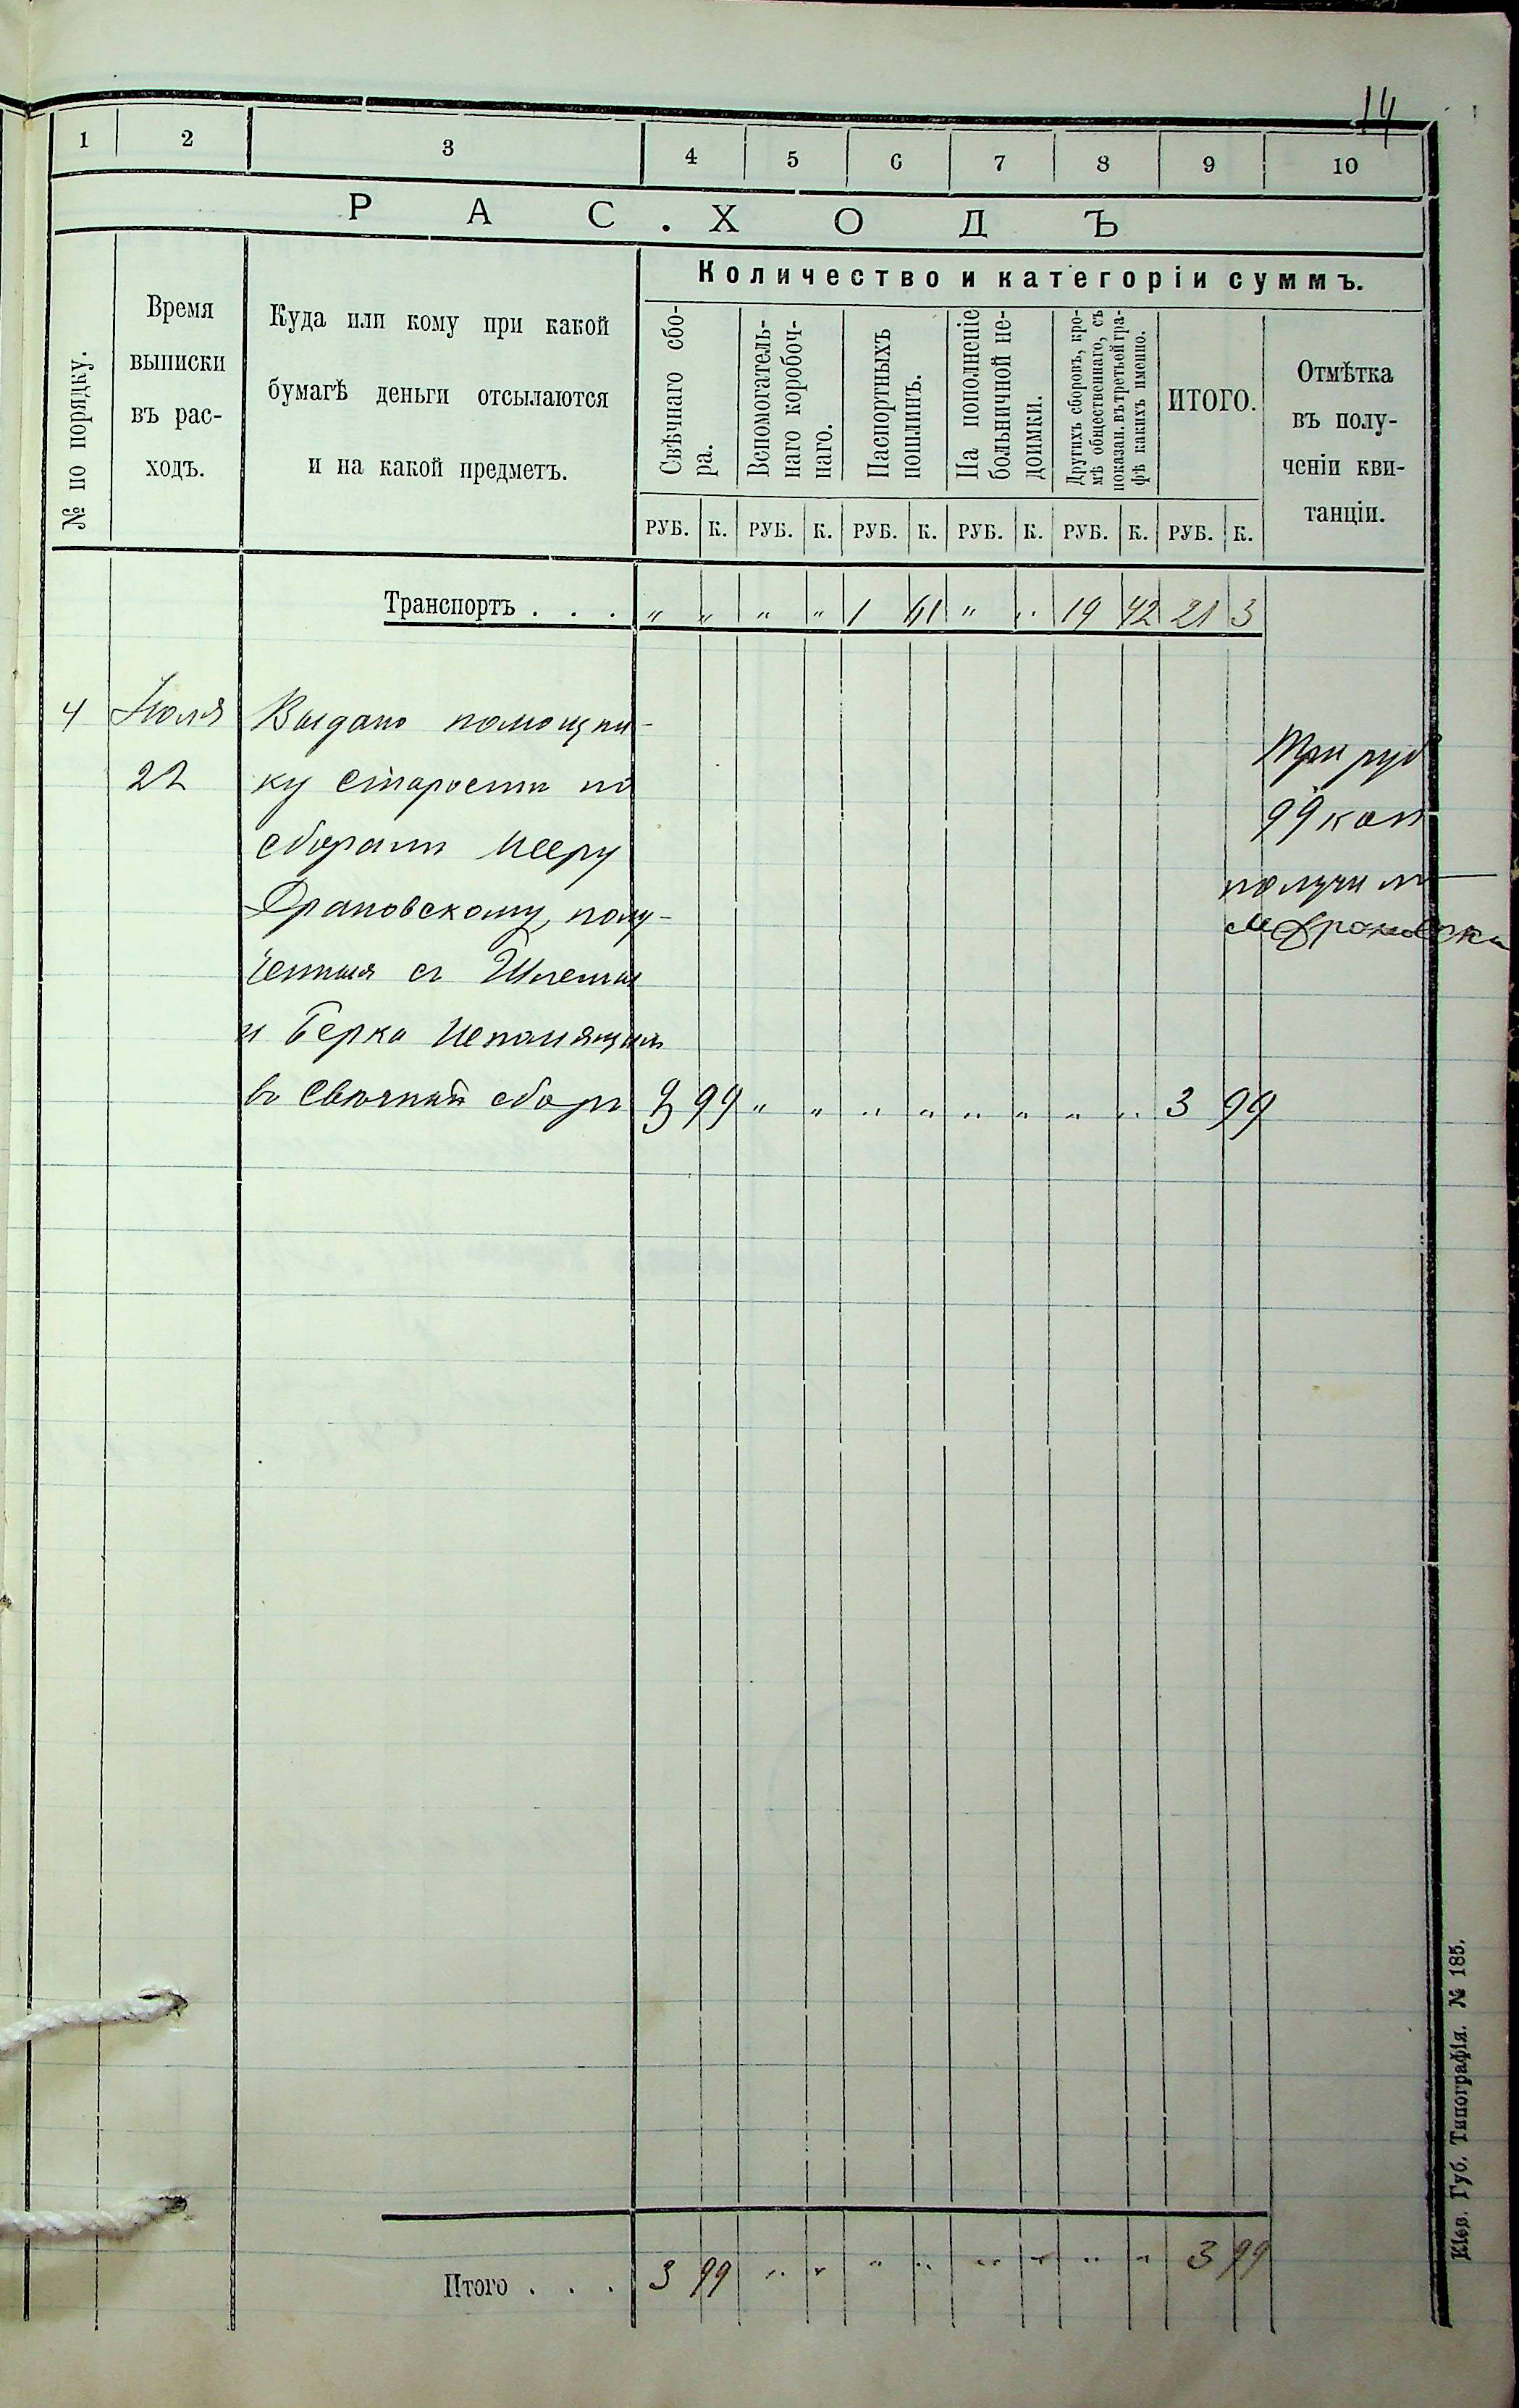 14
1 2 3 4 5 6 7 8 9 10
РАСХОДЪ
№ по порядку.
Время
выписки
въ рас-
ходъ.
Куда или кому при какой
бумагѣ деньги отсылаются
и на какой предметъ.
Количество и категоріи суммъ.
Свѣчнаго сбо-
ра.
Вспомогатель-
наго коробоч-
наго.
Паспортныхъ
пошлинъ.
На пополненіе
больничной не-
доимки.
Другихъ сборовъ, кро-
мѣ общественнаго, съ
показан. въ третьей гра-
фѣ какихъ именно.
ИТОГО.
Отмѣтка
въ полу-
ченіи кви-
танціи.
РУБ. К. РУБ. К. РУБ. К. РУБ. К. РУБ. К. РУБ. К.
Транспортъ . . . „ „ „ „ 1 61 „ „ 19 42 21 3
4 Іюля Выдано помощни-
22 ку старосты по
сборамъ Мееру
Драновскому, полу-
ченныя съ
и Берка
въ Свѣчной сборъ 3 99 „ „ „ „ „ „ „ „ 3 99
Три руб
99 коп
получилъ
М Драновски
Итого . . . 3 99 „ „ „ „ „ „ „ „ 3 99
Кіев. Губ. Типографія. № 185.